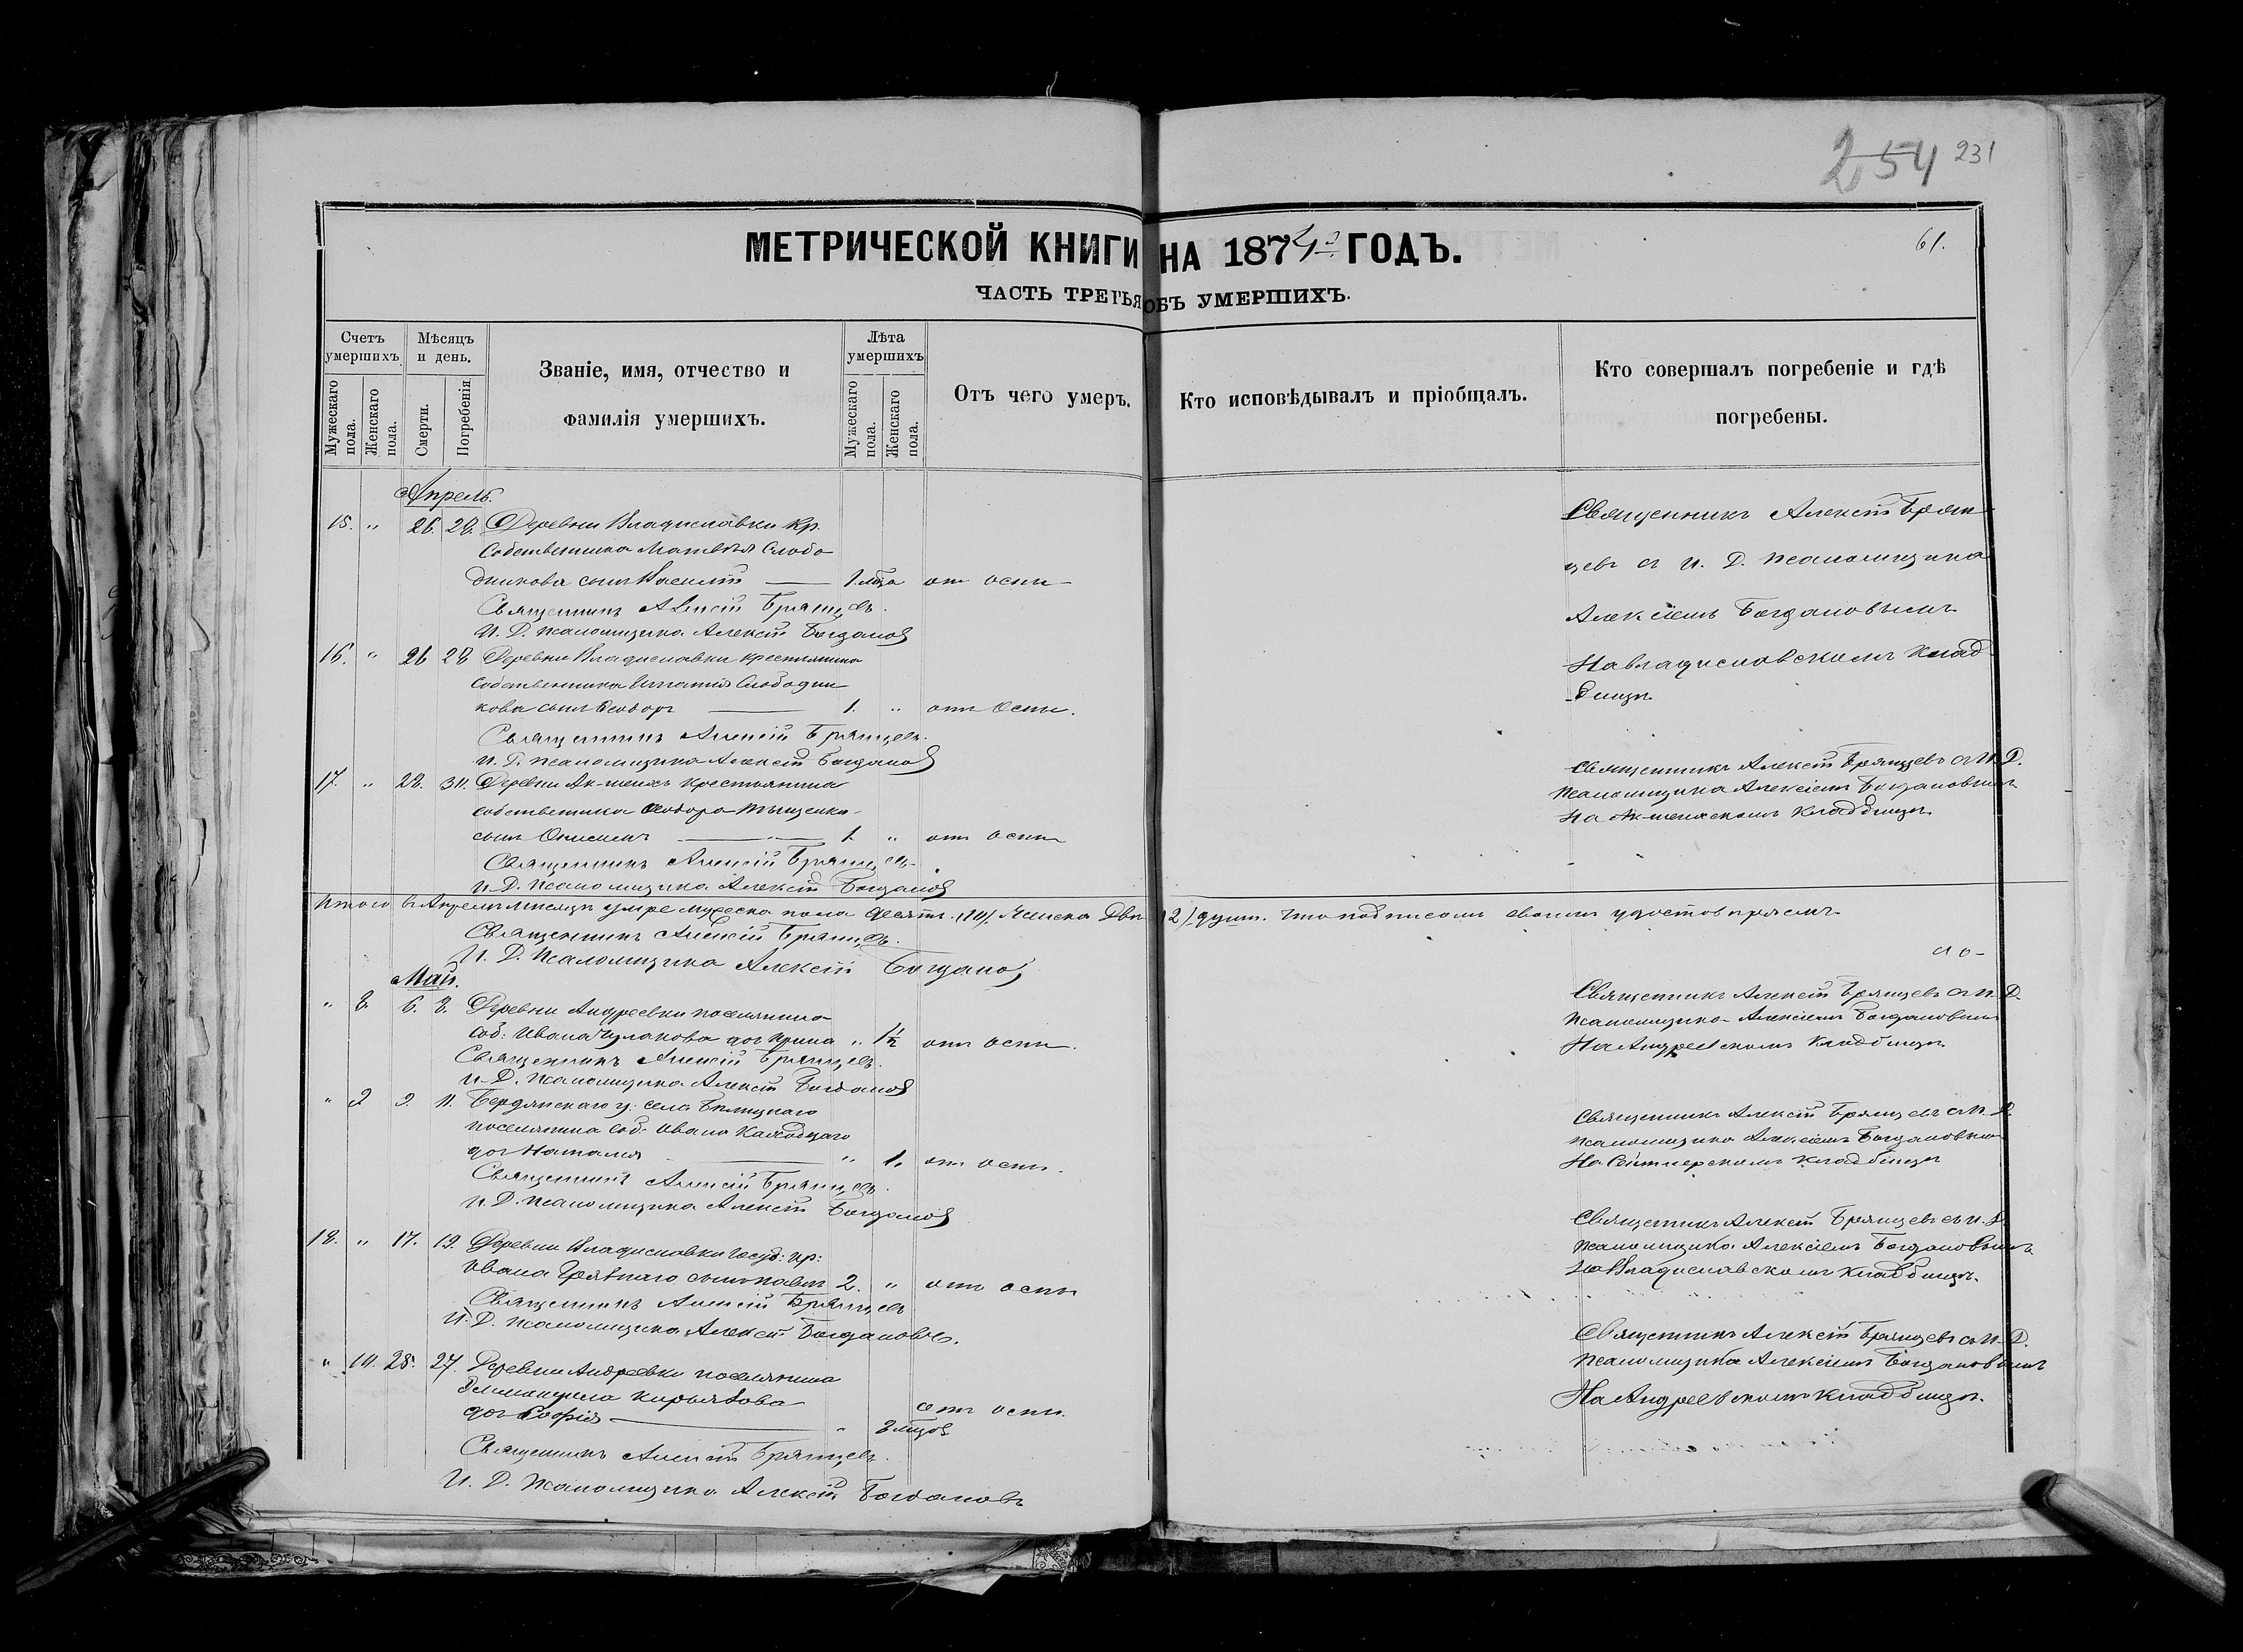 254 231
МЕТРИЧЕСКОЙ КНИГИ НА 1874й ГОДЪ.
61.
ЧАСТЬ ТРЕТЬЯ ОБЪ УМЕРШИХЪ.
Счетъ умершихъ.
Мужескаго пола.
Женскаго пола.
Мѣсяцъ и день.
Смерти.
Погребенія.
Званіе, имя, отчество и
фамилія умершихъ.
Лѣта умершихъ
Мужескаго пола.
Женскаго пола.
Отъ чего умеръ.
Кто исповѣдывалъ и пріобщалъ.
Кто совершалъ погребеніе и гдѣ
погребены.
Апрель.
15. " 26. 28. Деревни Владиславки Кр.
Собственника Матвѣя Слобо
дникова сынъ Василій 1. мца отъ оспы
Священникъ Алексій Брянцевъ.
И. Д. псаломщика Алексій Богданов
Священникъ Алексій Брян
цевъ съ И. Д. псаломщика
Алексіемъ Богдановымъ
На владиславскомъ клад
бищѣ
16. " 26 28 Деревни Владиславки крестьянина
собственника Игнатія Слободни
кова сынъ Ѳеодоръ 1. " отъ Оспы.
Священникъ Алексій Брянцевъ.
И. Д. псаломщика Алексій Богданов
17. " 28. 30. Деревни Ак-шеихъ крестьянина
собственника Ѳеодора
сынъ Онисимъ 1 " отъ оспы
Священникъ Алексій Брянцевъ
И. Д. псаломщика Алексій Богданов
Священникъ Алексій Брянцевъ съ И. Д.
псаломщика Алексіемъ Богдановымъ
На Ак-шеихскомъ кладбищѣ.
Итого въ Апрелѣ мѣсяцѣ умре мужеска пола десять (10). Женска Двѣ (2) души. Что подписомъ своимъ удостовѣряемъ
Священникъ Алексій Брянцевъ.
И. Д. псаломщика Алексій Богданов
Май.
" 8 6. 8. Деревни Андреевки поселянина
соб. Ивана Чулакова дочь Ирина " 1½ отъ оспы.
Священникъ Алексій Брянцевъ.
И. Д. псаломщика Алексій Богданов
Священникъ Алексій Брянцевъ съ И. Д.
псаломщика Алексіемъ Богдановымъ
На Андреевскомъ кладбищѣ
" 9 9. 11. Бердянскаго у. села
поселянина соб. Ивана
дочь Наталія " 1. отъ оспы.
Священникъ Алексій Брянцевъ.
И. Д. псаломщика Алексій Богданов
Священникъ Алексій Брянцевъ съ И. Д.
псаломщика Алексіемъ Богдановымъ
На кладбищѣ
18. " 17. 19. Деревни Владиславки Госуд: кр:
Ивана сынъ Павелъ 2. " отъ оспы
Священникъ Алексій Брянцевъ
И. Д. псаломщика Алексій Богдановъ.
Священникъ Алексій Брянцевъ съ И. Д.
псаломщика Алексіемъ Богдановымъ
на Владиславскомъ кладбищѣ.
" 10. 25. 27. Деревни Андреевки поселянина
Кирьякова
дочь Софія " 8 мцов отъ оспы.
Священникъ Алексій Брянцевъ.
И. Д. псаломщика Алексій Богдановъ
Священникъ Алексій Брянцевъ съ И. Д.
псаломщика Алексіемъ Богдановымъ
На Андреевскомъ кладбищѣ.